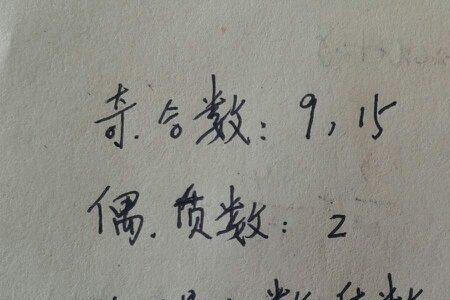 奇.合数：9，15
偶.质数：2